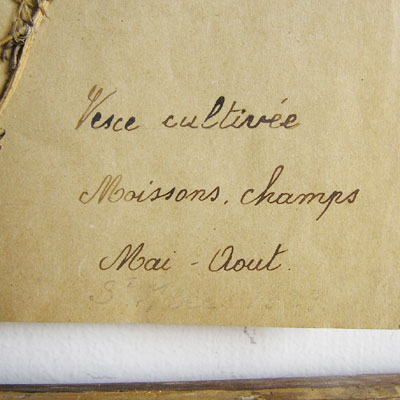 Vesce cultivée
Moissons, champs
Mai - Aout.